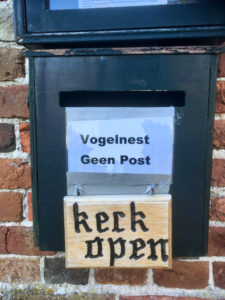 Vogelnest
Geen Post
kerk
open